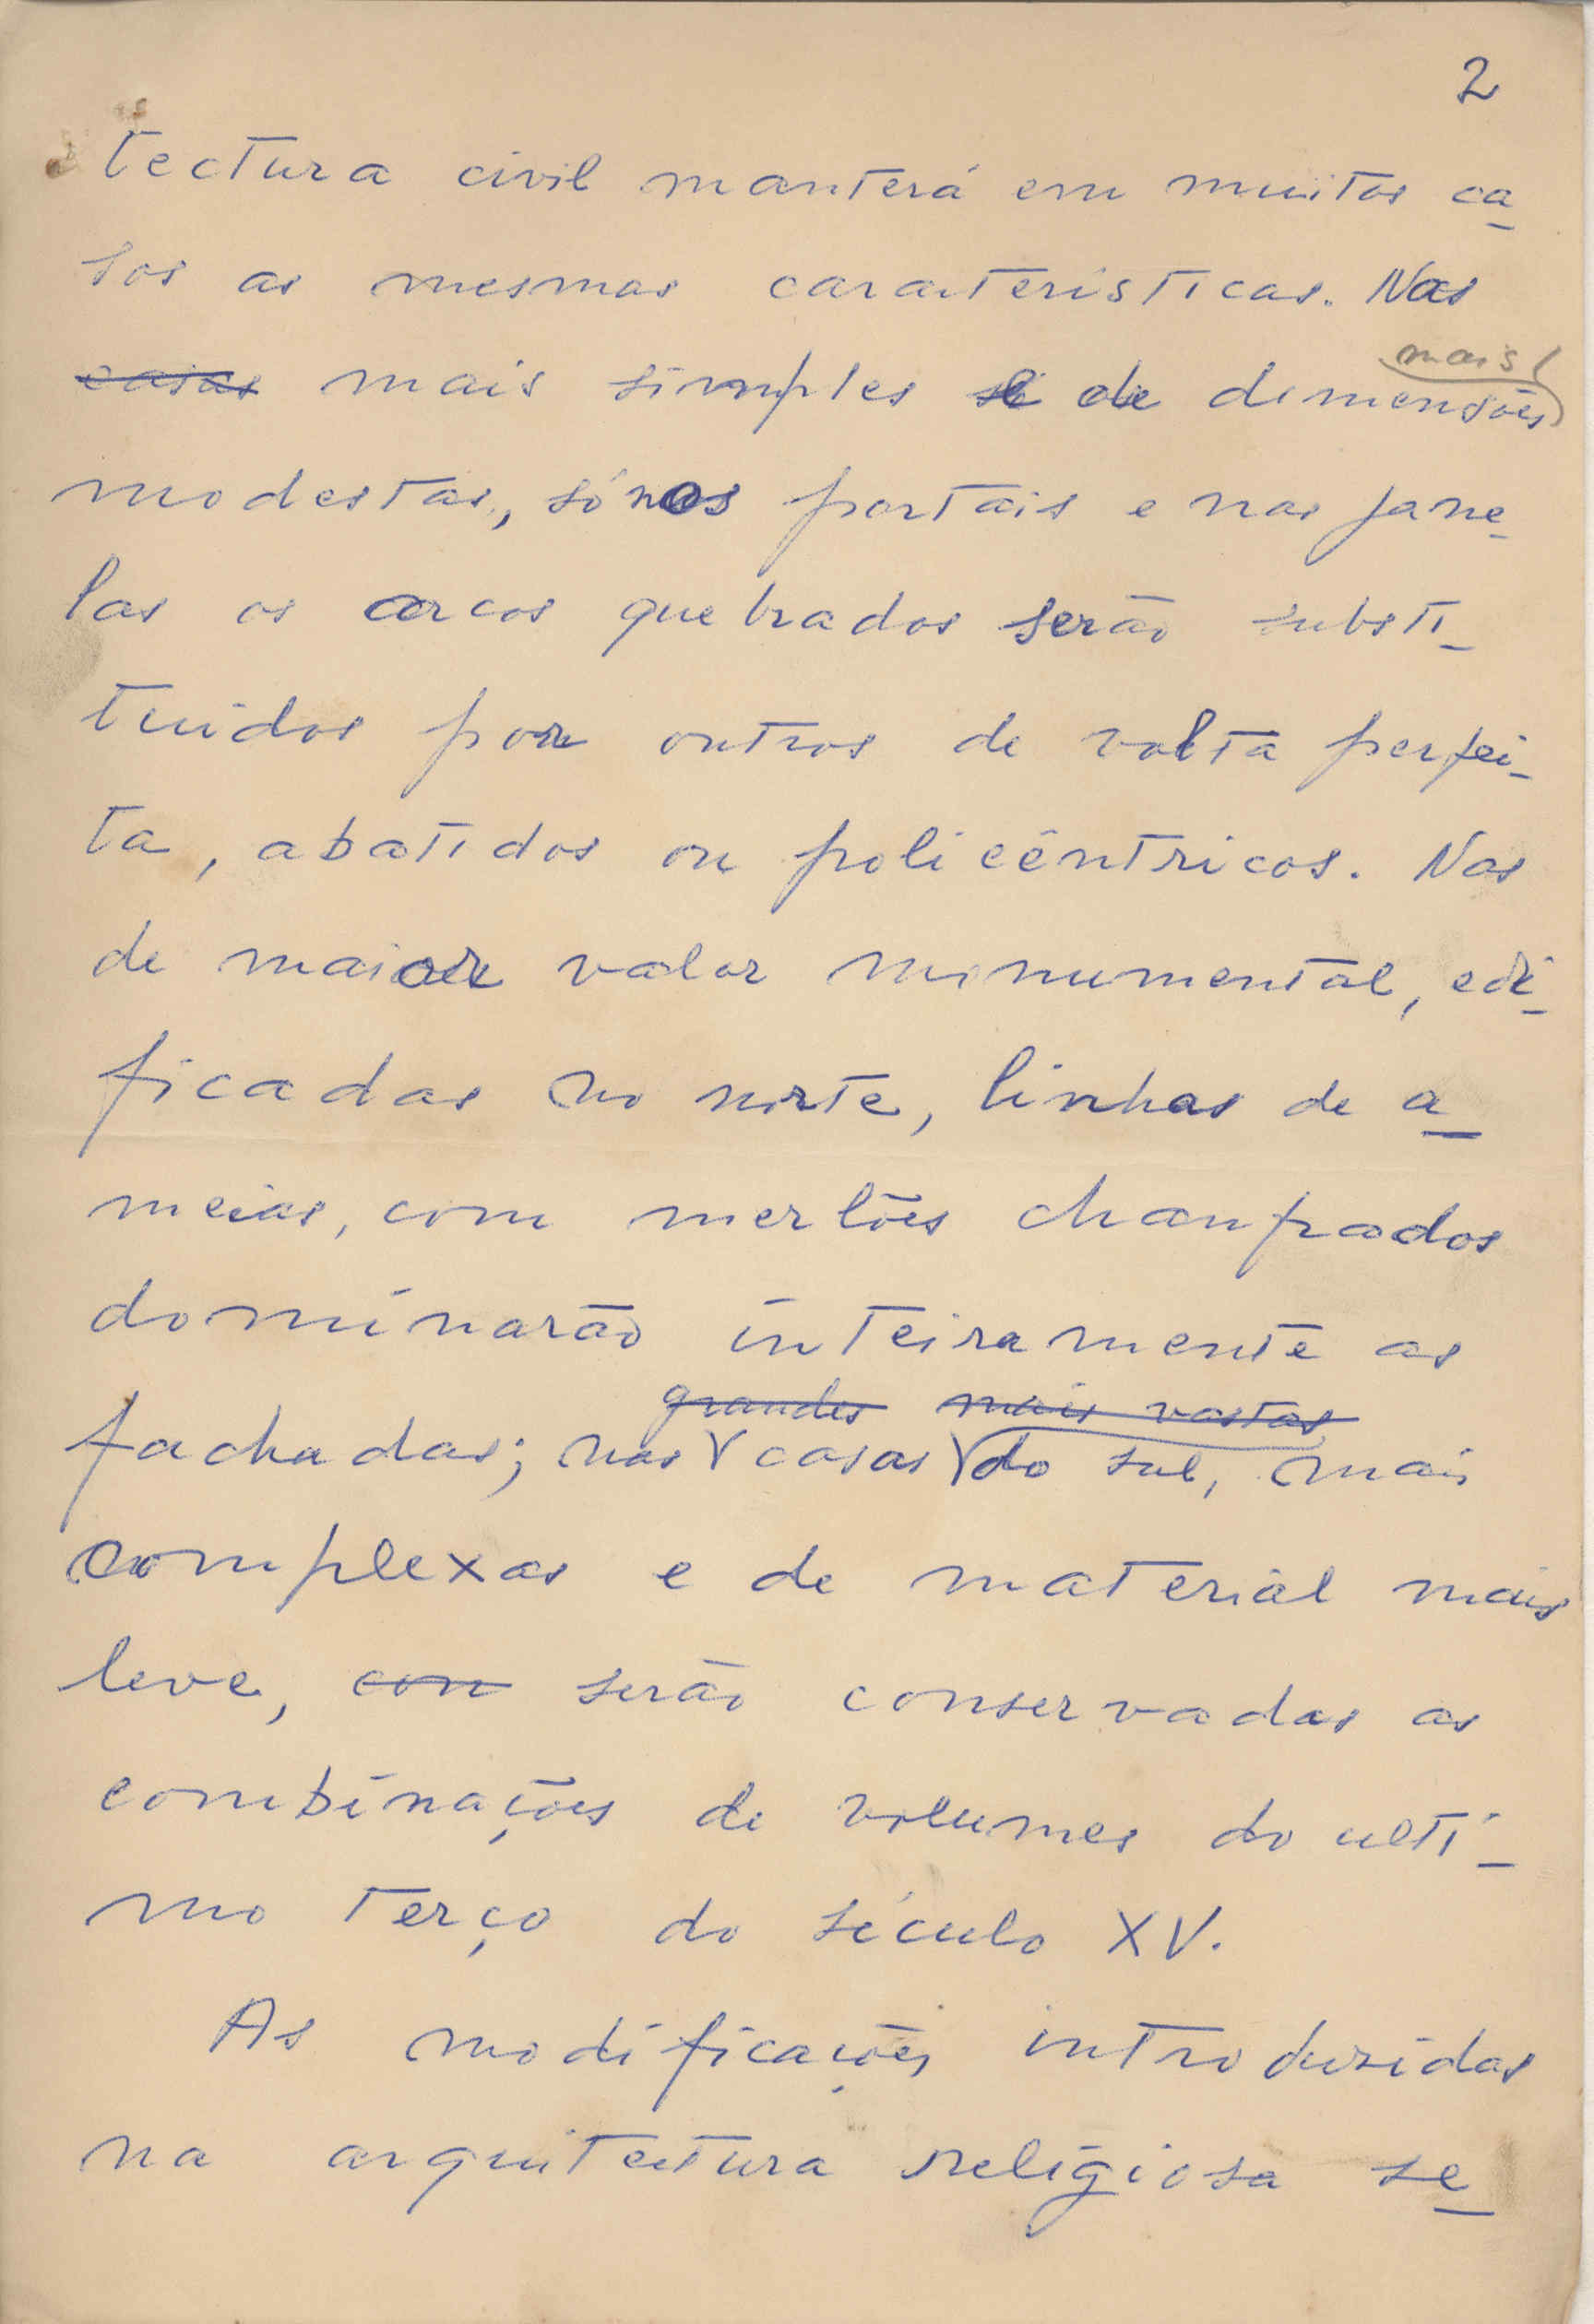 2
tectura civil manterá em muitos ca-
sos as mesmas caracteristicas. Nas
casas mais simples e de dimensões
mais
modestas, só nos portais e nas jane-
las os arcos quebrados serão substi-
tuidos por outros de volta perfei-
ta, abatidos ou policêntricos. Nas
de maior valor monumental, edi-
ficadas no norte, linhas de a-
meias, com merlões chanfrados
dominarão inteiramente as
grandes mais vastas
fachadas; nas casas do sul, mais
complexas e de material mais
leve, con serão conservadas as
combinações de volumes do ulti-
mo terço do século XV.
As modificações introduzidas
na arquitectura religiosa se-